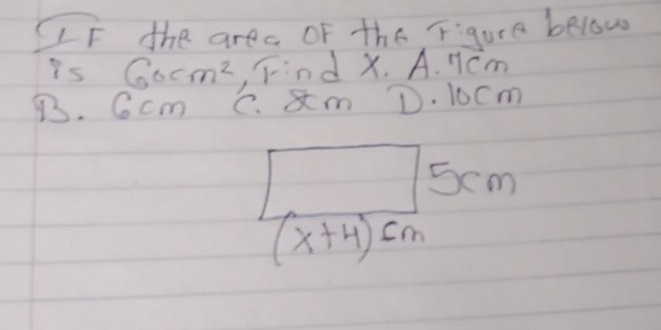 IF the area OF the Figure below
is 60cm², Find X. A. 7cm
B. 6cm C. 8cm D. 10cm
5cm
(x+4) cm